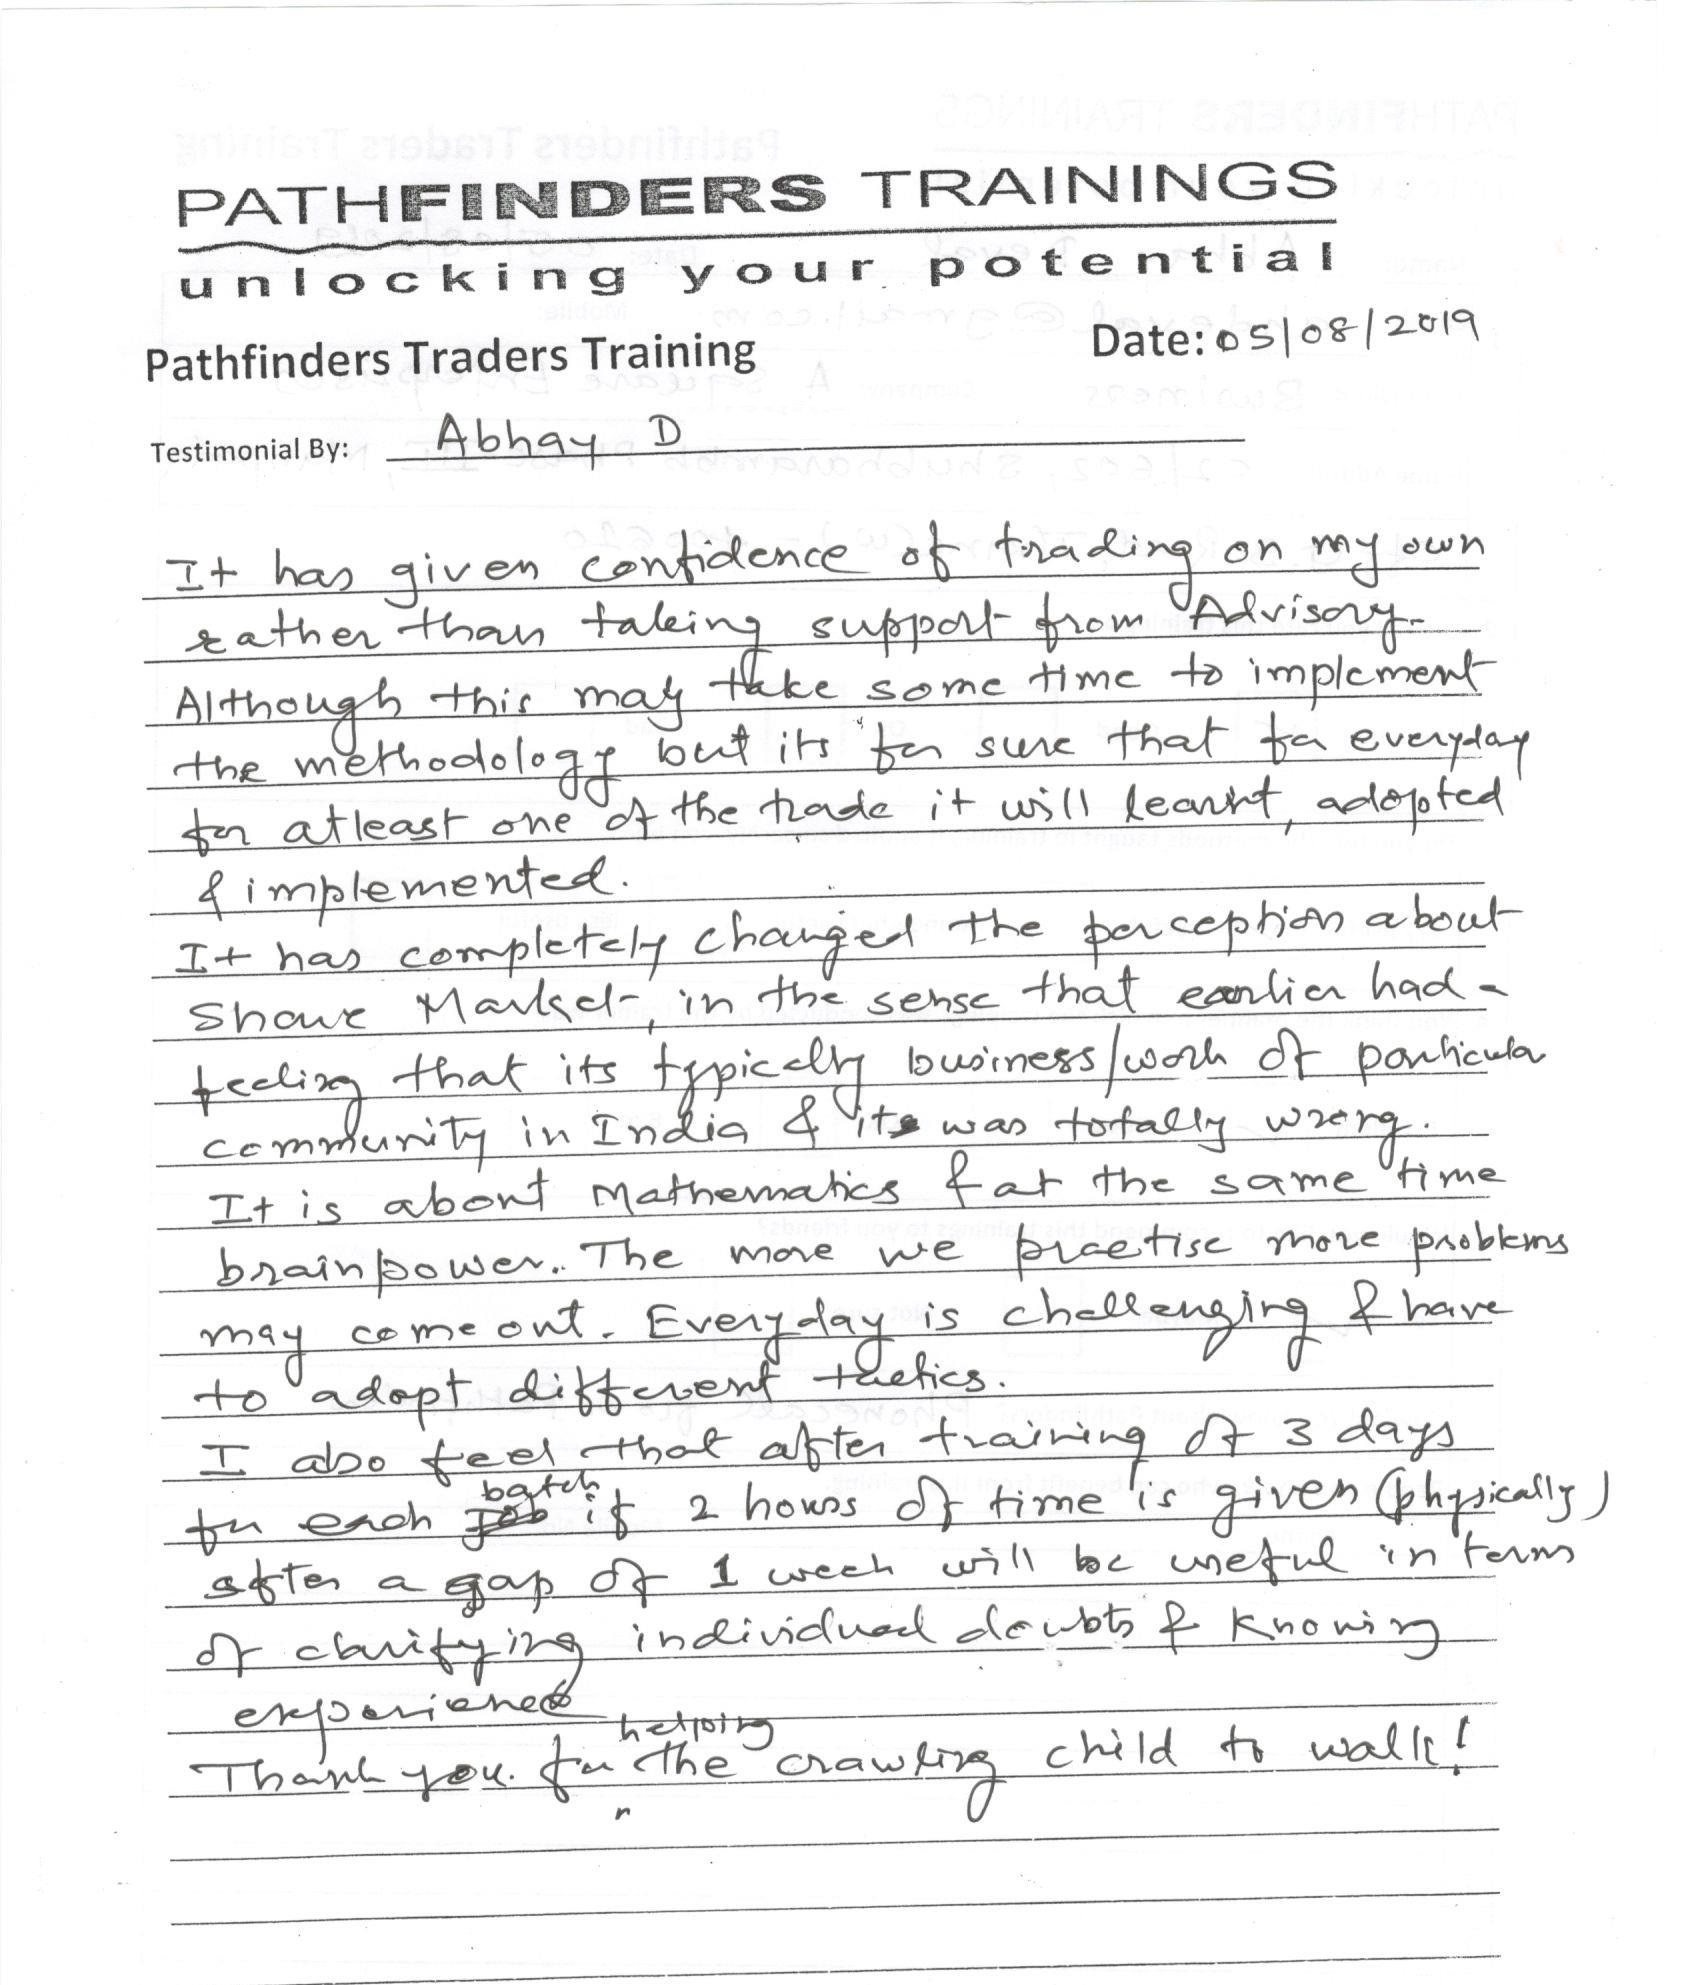 PATHFINDERS TRAININGS
unlocking your potential
Pathfinders Traders Training
Date: 05/08/2019
Testimonial By: Abhay D
It has given confidence of trading on my own
rather than taking support from Advisory.
Although this may take some time to implement
the methodology but its for sure that for everyday
for atleast one of the trade it will learnt, adopted
& implemented.
It has completely changed the perception about
Share Market, in the sense that earlier had a
feeling that its typically business/work of particular
community in India & its was totally wrong.
It is about Mathematics & at the same time
brainpower. The more we practise more problems
may come out. Everyday is challenging & have
to adopt different tactics.
I also feel that after training of 3 days
for each batch if 2 hours of time is given (physically)
after a gap of 1 week will be useful in terms
of clarifying individual doubts & knowing
experience
Thank you for helping the crawling child to walk!